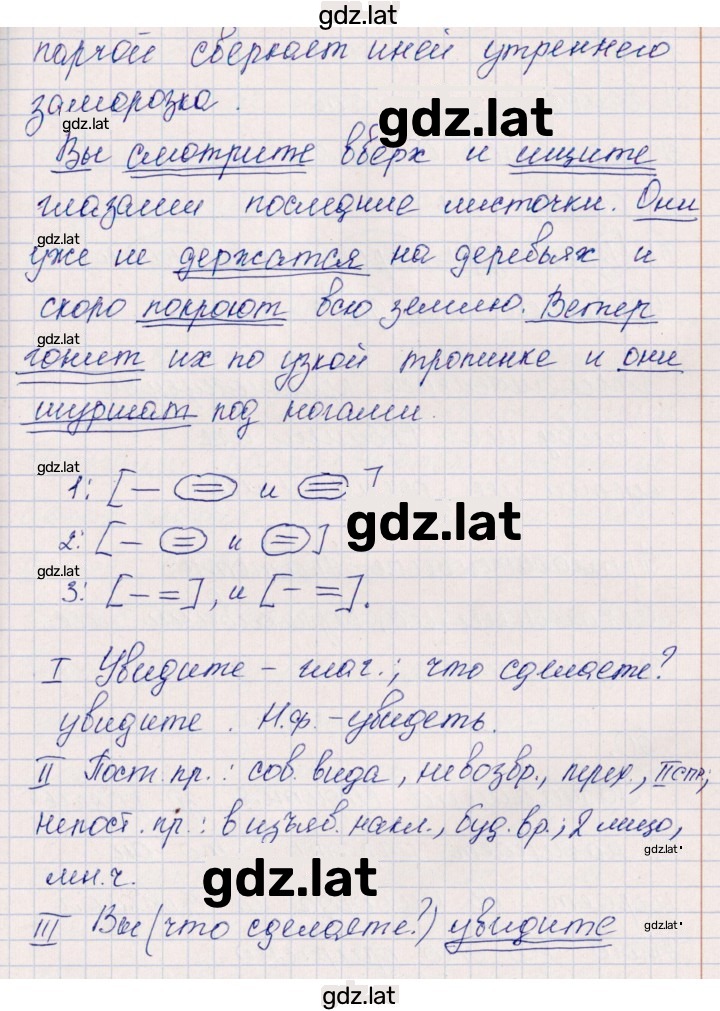 gdz.lat
парчой сверкает иней утреннего
заморозка.
gdz.lat
gdz.lat
Вы смотрите вверх и ищите
глазами последние листочки. Они
gdz.lat
уже не держатся на деревьях и
скоро покроют всю землю. Ветер
gdz.lat
гонит их по узкой тропинке и они
шуршат под ногами.
gdz.lat
1: [— = и =]
gdz.lat
2: [— = и =]
gdz.lat
3: [— =], и [— =].
I Увидите – глаг.; что сделаете?
увидите. Н.ф. – увидеть.
II Пост. пр.: сов. вида, невозвр., перех., II спр.;
непост. пр.: в изъяв. накл., буд. вр.; 2 лицо,
gdz.lat
мн.ч.
gdz.lat
III Вы (что сделаете?) увидите
gdz.lat
gdz.lat